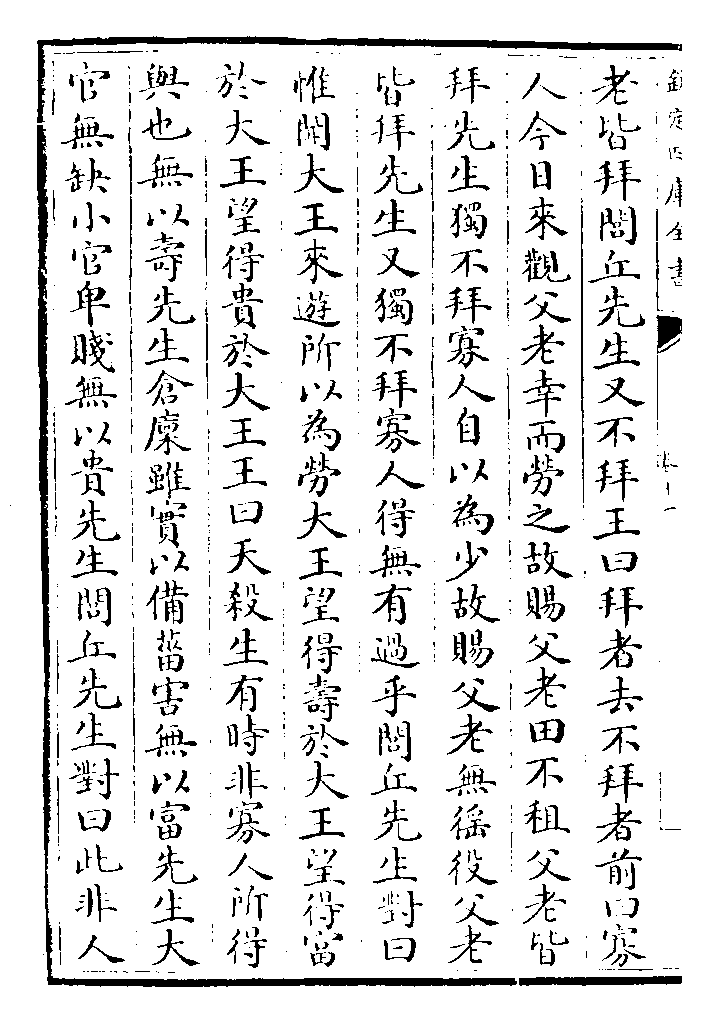 欽定四庫全書
卷十一
老皆拜閭丘先生又不拜王曰拜者去不拜者前曰寡
人今日來觀父老幸而勞之故賜父老田不租父老皆
拜先生獨不拜寡人自以為少故賜父老無徭役父老
皆拜先生又獨不拜寡人得無有過乎閭丘先生對曰
惟聞大王來遊所以為勞大王望得壽於大王望得富
於大王望得貴於大王王曰天殺生有時非寡人所得
與也無以壽先生倉廩雖實以備菑害無以富先生大
官無缺小官卑賤無以貴先生閭丘先生對曰此非人